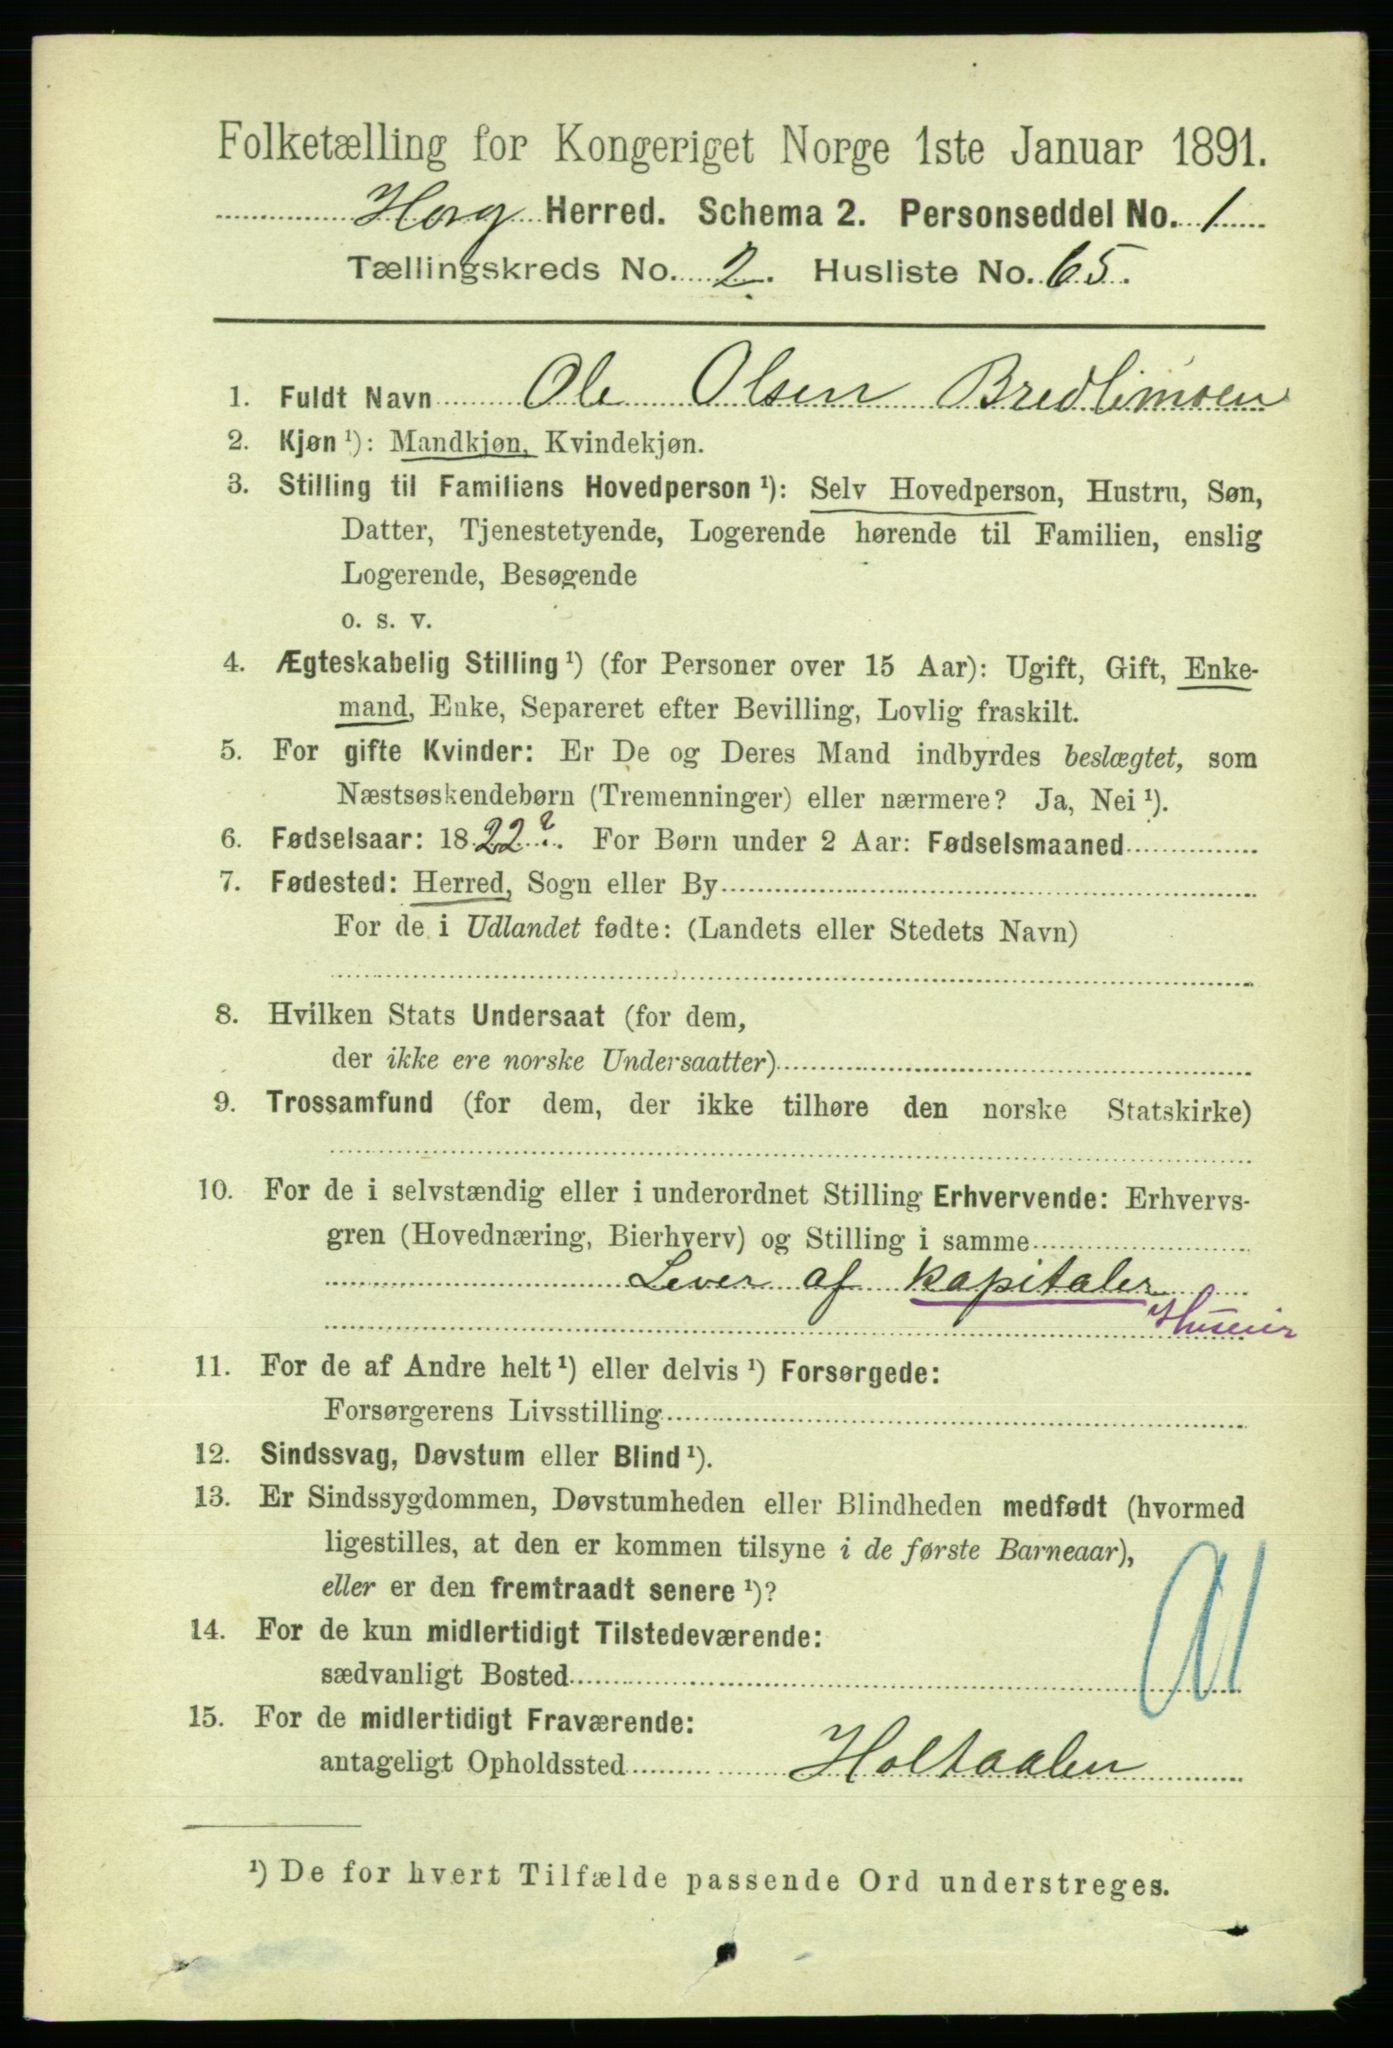 Folketælling for Kongeriget Norge 1ste Januar 1891.
Horg Herred. Schema 2. Personseddel No. 1
Tællingskreds No. 2. Husliste No. 65.
1. Fuldt Navn Ole Olsen Bredlimoen
2. Kjøn ¹): Mandkjøn, Kvindekjøn.
3. Stilling til Familiens Hovedperson ¹): Selv Hovedperson, Hustru, Søn,
Datter, Tjenestetyende, Logerende hørende til Familien, enslig
Logerende, Besøgende
o. s. v.
4. Ægteskabelig Stilling ¹) (for Personer over 15 Aar): Ugift, Gift, Enke-
mand, Enke, Separeret efter Bevilling, Lovlig fraskilt.
5. For gifte Kvinder: Er De og Deres Mand indbyrdes beslægtet, som
Næstsøskendebørn (Tremenninger) eller nærmere? Ja, Nei ¹).
6. Fødselsaar: 1822?. For Børn under 2 Aar: Fødselsmaaned
7. Fødested: Herred, Sogn eller By
For de i Udlandet fødte: (Landets eller Stedets Navn)
8. Hvilken Stats Undersaat (for dem,
der ikke ere norske Undersaatter)
9. Trossamfund (for dem, der ikke tilhøre den norske Statskirke)
10. For de i selvstændig eller i underordnet Stilling Erhvervende: Erhvervs-
gren (Hovednæring, Bierhverv) og Stilling i samme
Lever af kapitaler
Huseier
11. For de af Andre helt ¹) eller delvis ¹) Forsørgede:
Forsørgerens Livsstilling
12. Sindssvag, Døvstum eller Blind ¹).
13. Er Sindssygdommen, Døvstumheden eller Blindheden medfødt (hvormed
ligestilles, at den er kommen tilsyne i de første Barneaar),
eller er den fremtraadt senere ¹)?
14. For de kun midlertidigt Tilstedeværende:
sædvanligt Bosted
15. For de midlertidigt Fraværende:
antageligt Opholdssted Holtaalen
¹) De for hvert Tilfælde passende Ord understreges.